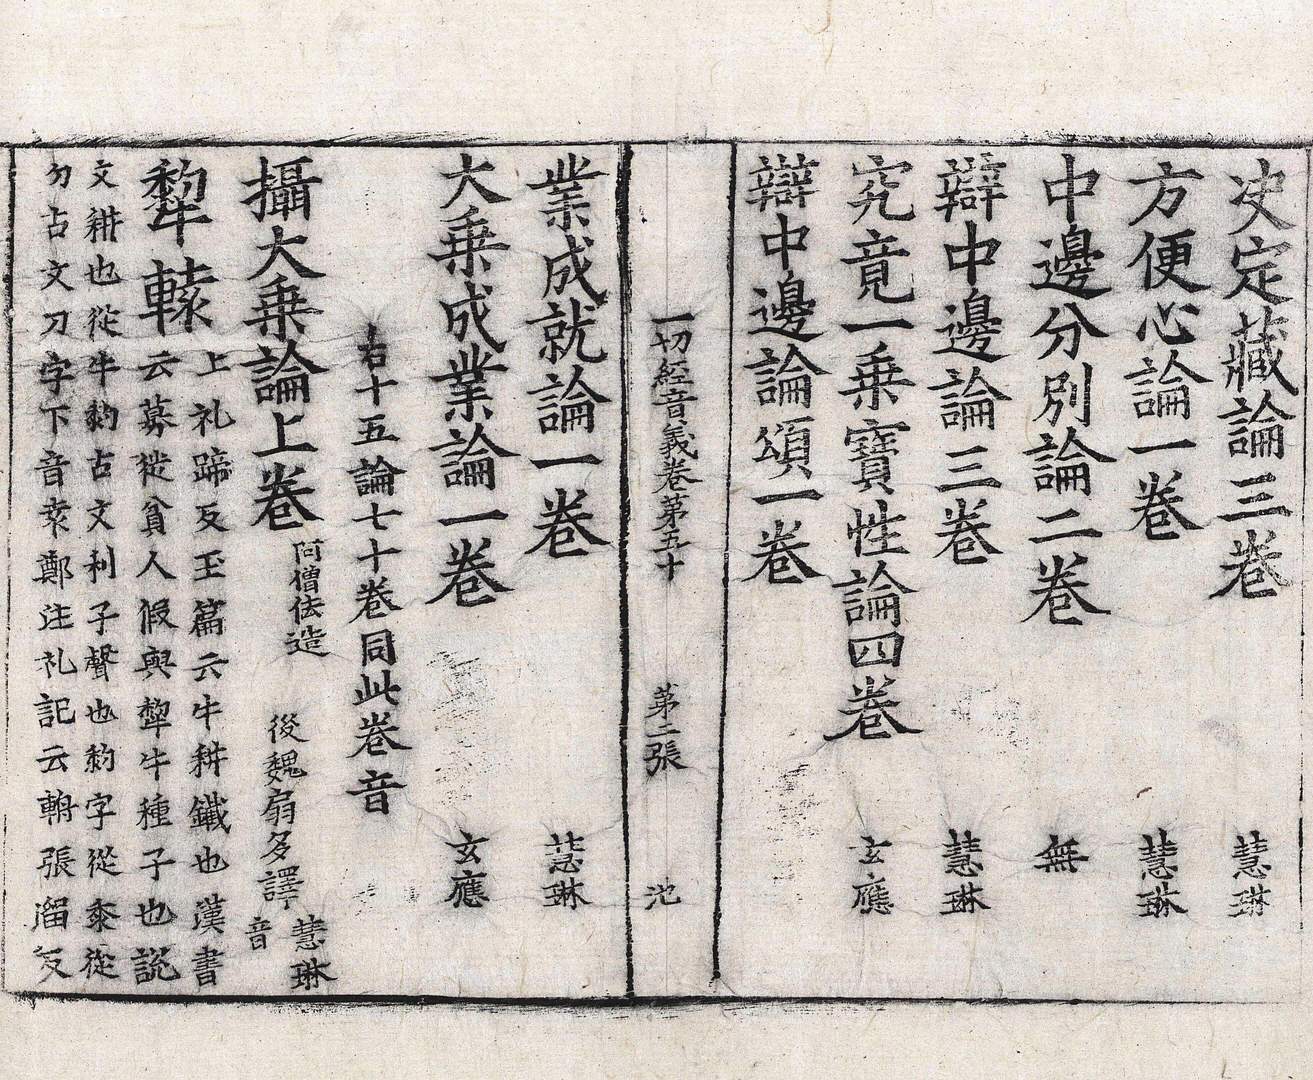 决定藏論三卷 慧琳
方便心論一卷 慧琳
中邊分別論二卷 無
辯中邊論三卷 慧琳
究竟一乗寶性論四卷 玄應
辯中邊論頌一卷
一切經音義卷第五十 第二張 池
業成就論一卷 慧琳
大乗成業論一卷 玄應
右十五論七十卷同此卷音
攝大乗論上卷 阿僧佉造 後魏扇多譯 慧琳音
犂轅 上礼蹄反玉篇云牛耕鐵也漢書
云募從貧人假與犂牛種子也說
文耕也從牛𥝢古文利子聲也𥝢字從黍從
勿古文刀字下音袁鄭注礼記云輈張溜反